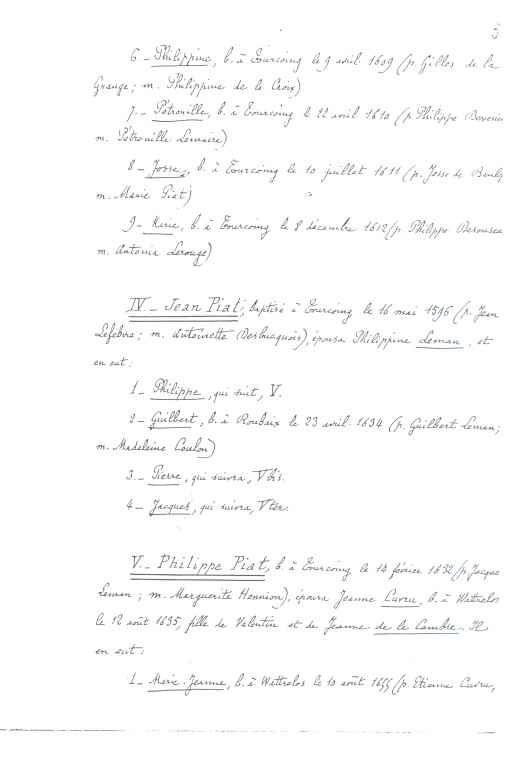 5
6. _ Philippine, b. à Tourcoing le 9 avril 1609 (p. Gilles de la
Grange; m. Philippine de le Croix)
7. _ Pétronille, b. à Tourcoing le 22 avril 1610 (p. Philippe
m. Pétronille Lemaire)
8 _ Josse, b. à Tourcoing le 10 juillet 1611 (p. Josse de
m. Marie Piat)
9 _ Marie, b. à Tourcoing le 8 décembre 1612 (p. Philippe
m. Antonia Lerouge)
IV. _ Jean Piat, baptisé à Tourcoing le 16 mai 1596 (p. Jean
Lefebvre; m. Antoinette Desbucquois), épousa Philippine Leman, et
en eut:
1 _ Philippe, qui suit, V.
2 _ Guilbert, b. à Roubaix le 23 avril 1634 (p. Guilbert Leman;
m. Madeleine Coulon)
3. _ Pierre, qui suivra, V bis.
4 _ Jacques, qui suivra, V ter.
V. _ Philippe Piat, b. à Tourcoing le 14 février 1632 (p. Jacque
Leman; m. Marguerite Hennion), épousa Jeanne Cuvru, b. à Wattrelos
le 12 août 1635, fille de Valentin et de Jeanne de le Cambre. Il
en eut:
1 _ Marie-Jeanne, b. à Wattrelos le 10 août 1655 (p. Etienne Cuvru,